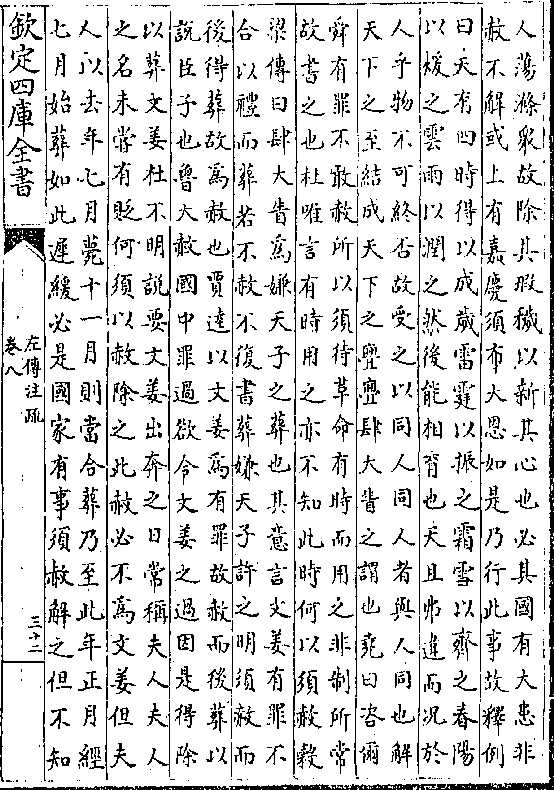 人蕩滌衆故除其瑕穢以新其心也必其國有大患非
赦不解或上有嘉慶須布大恩如是乃行此事故釋例
曰天有四時得以成歲雷霆以振之霜雪以齊之春陽
以煖之雲雨以潤之然後能相育也天且弗違而況於
人乎物不可終否故受之以同人同人者與人同也解
天下之至結成天下之亹亹肆大眚之謂也堯曰咨爾
舜有罪不敢赦所以須待革命有時而用之非制所常
故書之也杜唯言有時用之亦不知此時何以須赦穀
梁傳曰肆大眚為嫌天子之葬也其意言文姜有罪不
合以禮而葬若不赦不復書葬嫌天子許之明須赦而
後得葬故為赦也賈逵以文姜為有罪故赦而後葬以
說臣子也魯大赦國中罪過欲令文姜之過因是得除
以葬文姜杜不明說要文姜出奔之日常稱夫人夫人
之名未嘗有貶何須以赦除之此赦必不為文姜但夫
人以去年七月薨十一月則當合葬乃至此年正月經
七月始葬如此遲緩必是國家有事須赦解之但不知
欽定四庫全書
左傳注疏
卷八
三十二